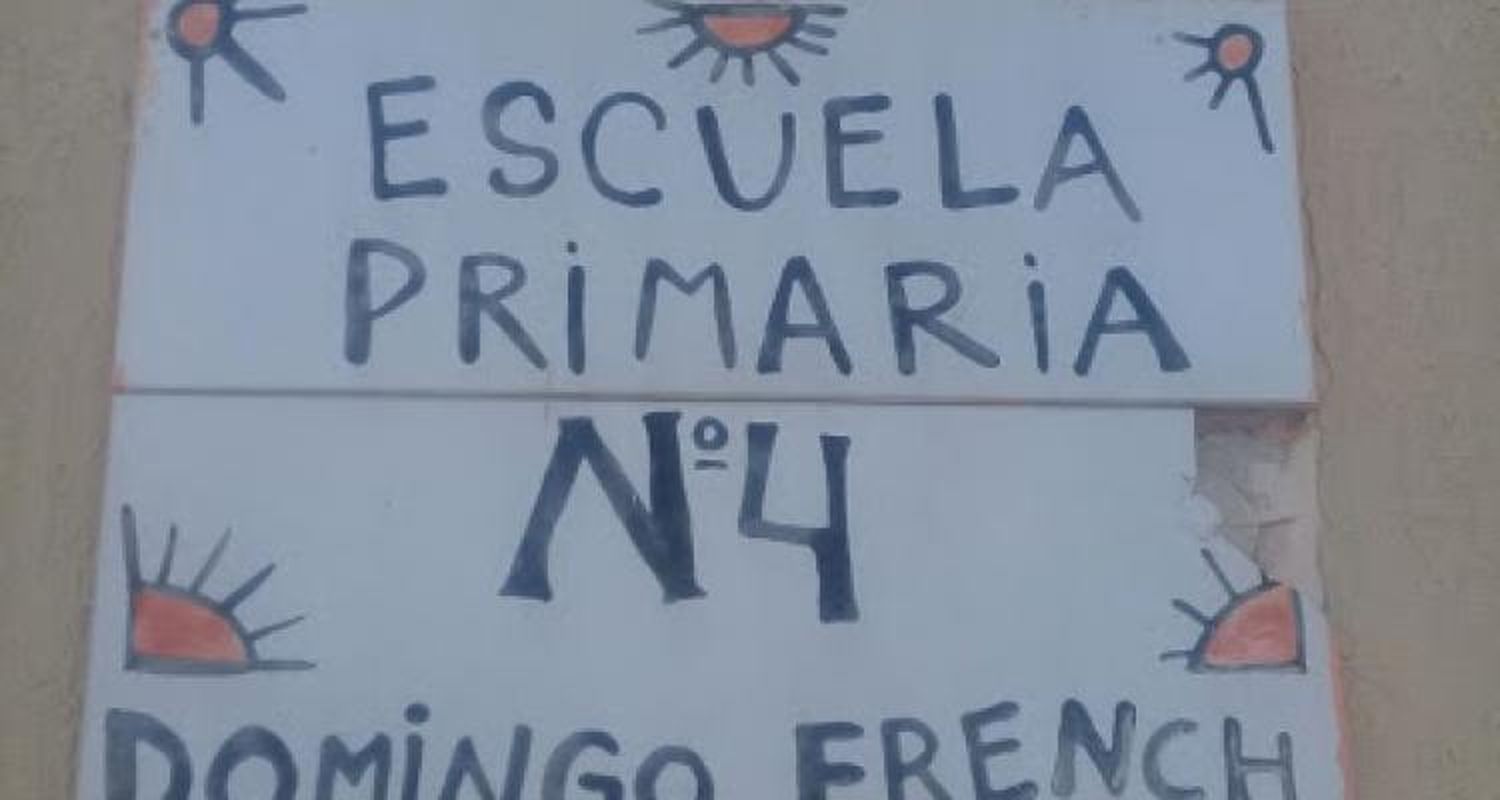 ESCUELA
PRiMARiA
Nº4
DOMiNGO FRENCH